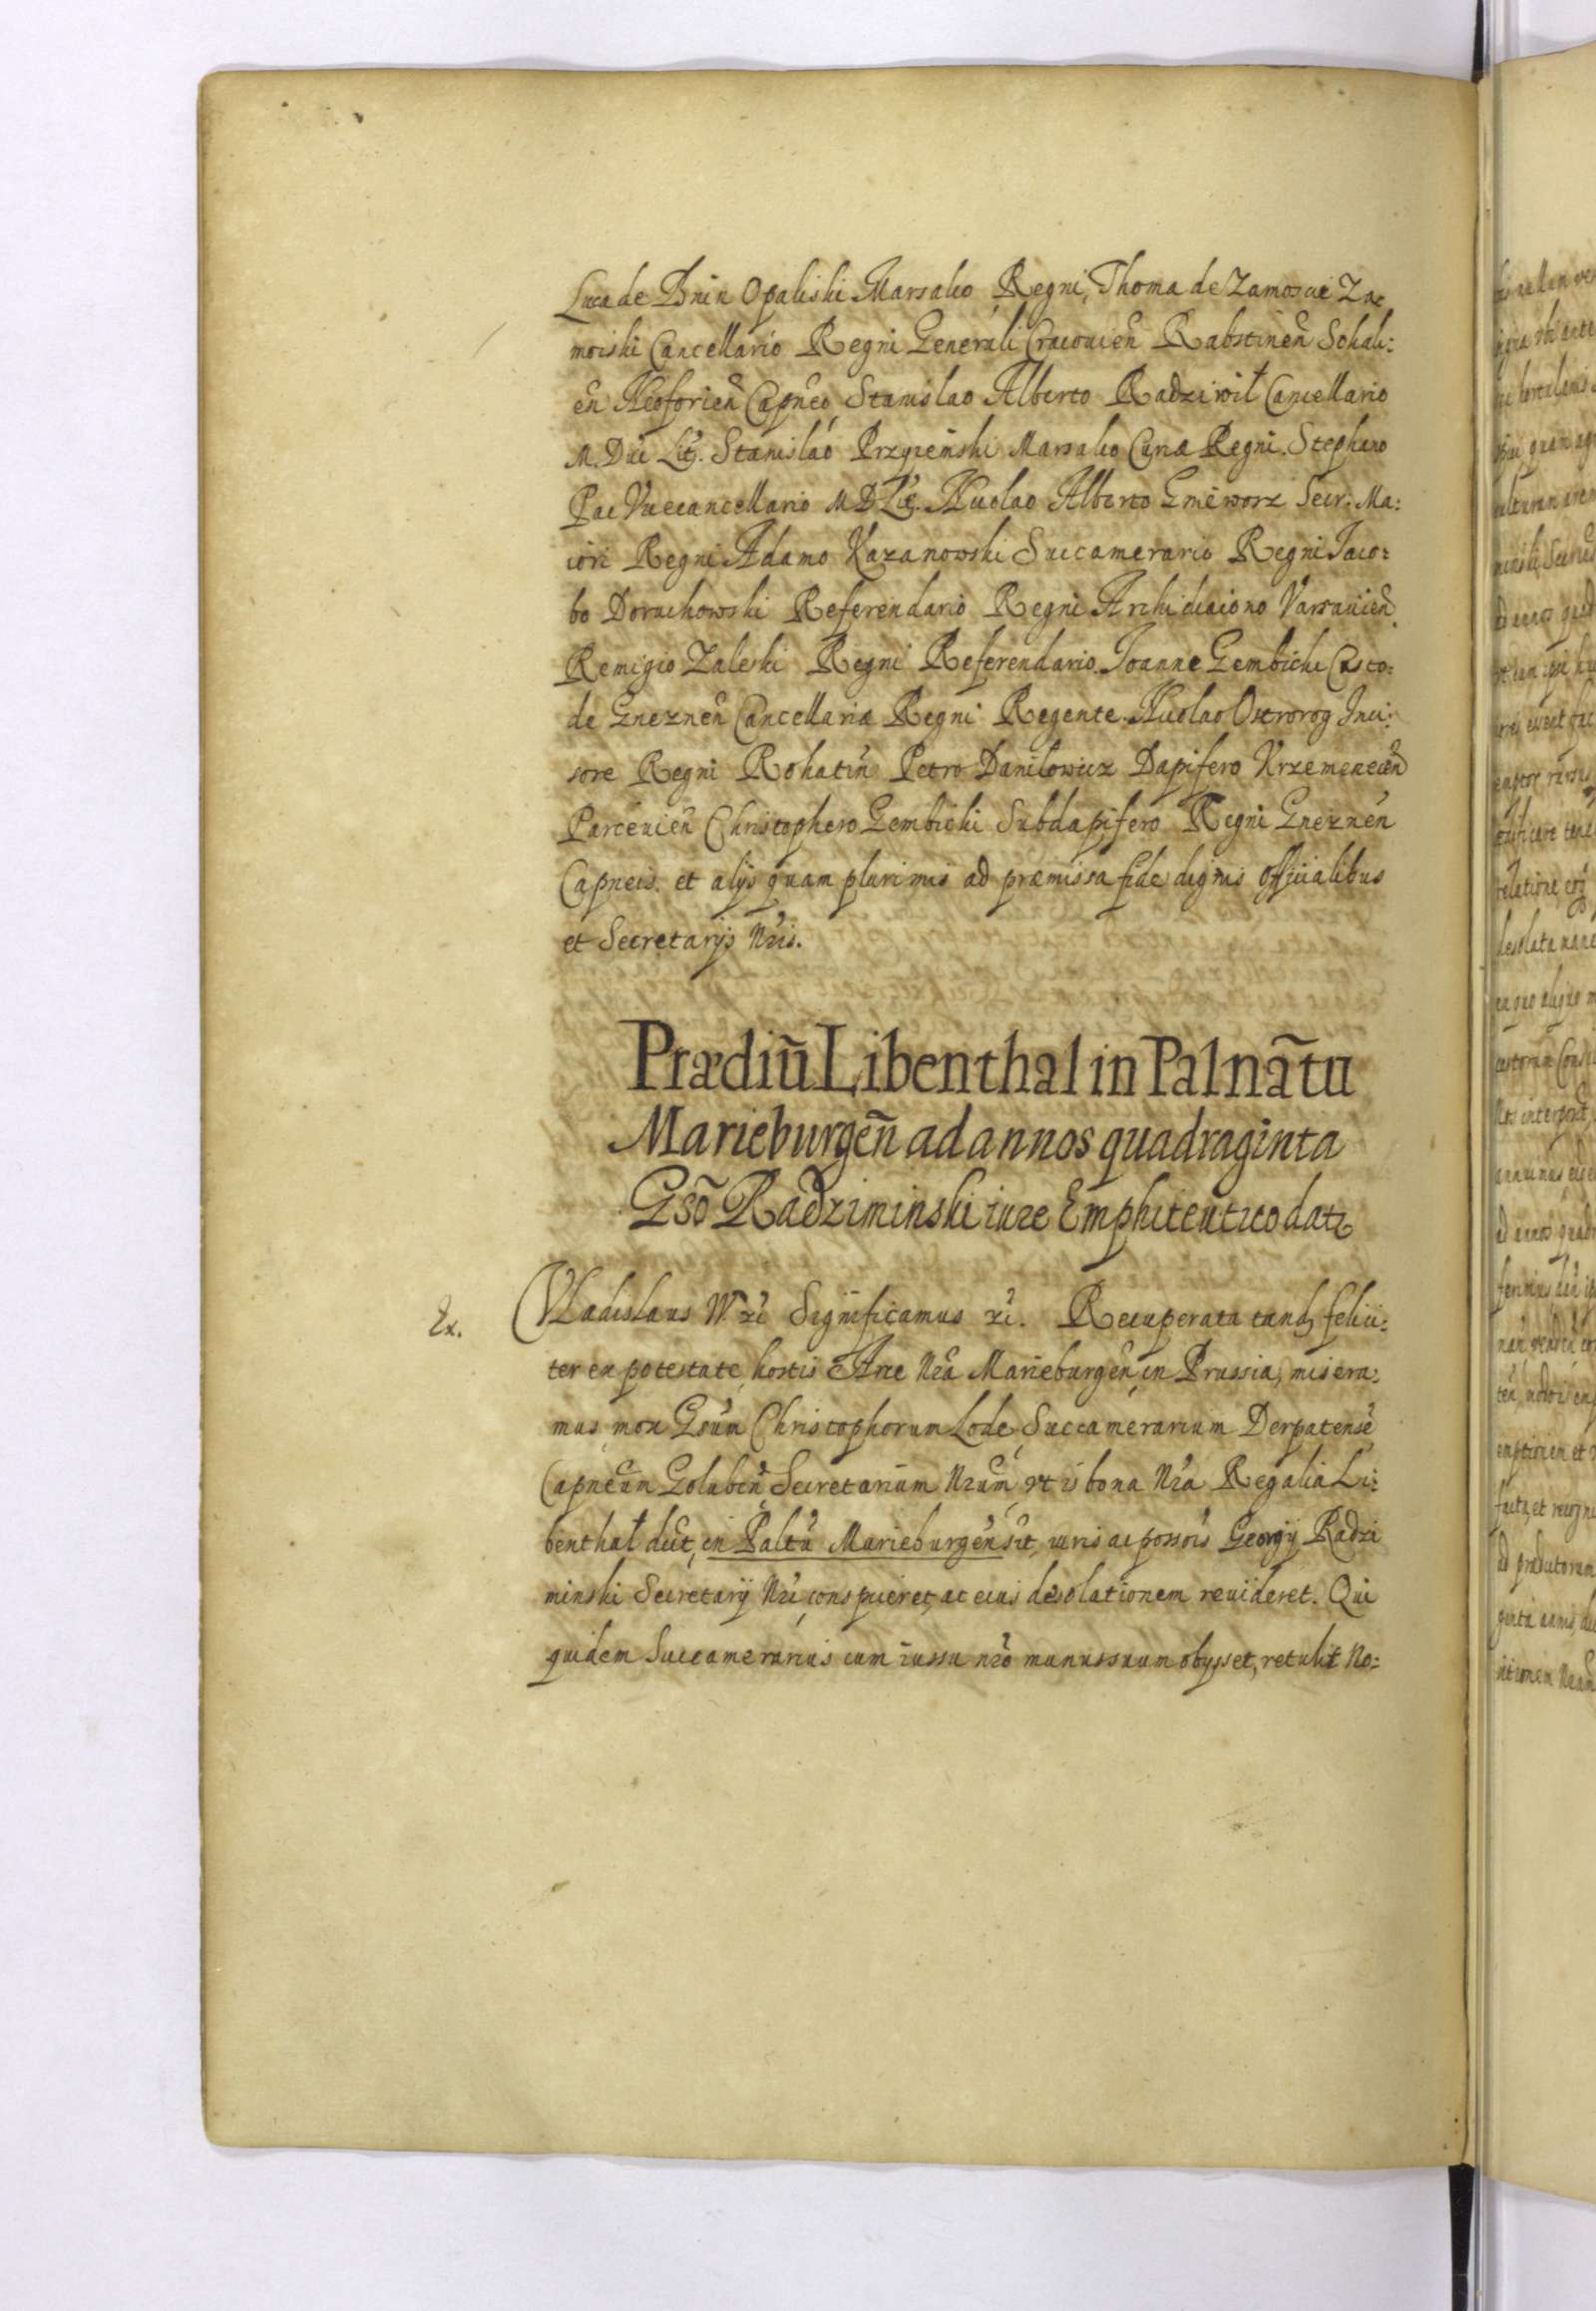 Luca de Bnin Opaliski Marsalco Regni, Thoma de Zamoscie Za
moiski Cancellario Regni Generali Cracouien̄ Rabstinen̄ Sokali:
en̄ Neoforien̄ Capn̄eo Stanislao Alberto Radziwił Cancellario
M. Duc Lit̄. Stanislao Przyiemski Marsalco Curiæ Regni. Stephano
Pac Vicecancellario M D Lit̄. Nicolao Alberto Gniewosz Secr: Ma:
iori Regni Adamo Kazanowski Succamerario Regni Iaco:
bo Doruchowski Referendario Regni Archidiacono Varsauien̄
Remigio Zaleski Regni Referendario. Ioanne Gembicki Custo:
de Gneznen̄ Cancellariæ Regni Regente. Nicolao Ostrorog Inci:
sore Regni Rohatin̄ Petro Danilowicz Dapifero Krzemenecen̄
Parcēuien̄ Christophero Gembicki Subdapifero Regni Gneznen̄
Capneis. et alijs quam plurimis ad præmissa fide dignis Officialibus
et Secretarijs Nr̄is.
Prædiū Libenthal in Palnātu
Marieburgen̄ ad annos quadraginta
Gsō Radziminski iure Emphiteutico datz
Ex.
Vladislaus IV. r̄i Significamus r̄i. Recuperata tandȝ felici:
ter ex potestate hostis Arce Nr̄a Marieburgen̄, in Prussia, misera:
mus mox Gsūm Christophorum Lode Succamerarium Derpatensē
Capnēum Golubēn Secretarium Nr̄um, vt is bona Nr̄a Regalia Li:
benthal dict̄, in Paltū Marieburgen̄ sit, iuris ac possōis Georgij Radzi
minski Secretarij Nr̄i conspiceret, ac eius desolationem reuideret. Qui
quidem Succamerarius cum iussu nr̄o munus suum obijsset, retulit No: